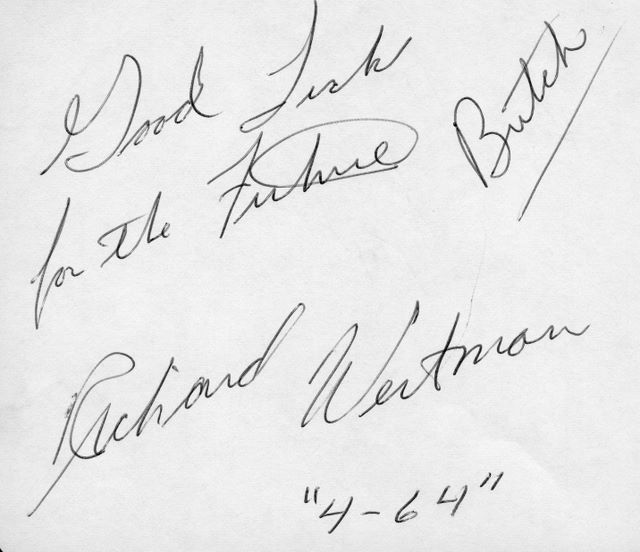 Good Luck Butch
for the Future
Richard Westman
"4-64"